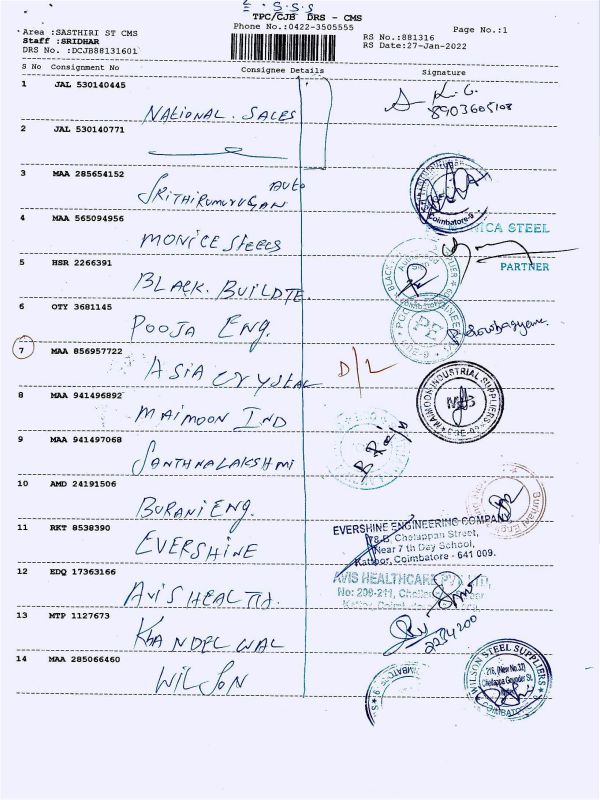 TPC/CJB DRS - CMS
Phone No.:0422-3505555
Page No.:1
Area :SASTHIRI ST CMS
Staff :SRIDHAR
DRS No. :DCJB88131601
RS No.:881316
RS Date:27-Jan-2022
S No Consignment No Consignee Details Signature
1 JAL 530140445
NATIONAL. SALES
8903605108
2 JAL 530140771
3 MAA 285654152
AUTO
SRITHIRUMURUGAN
Coimbatore-9
4 MAA 565094956
MONICE STEELS
ICA STEEL
PARTNER
5 HSR 2266391
BLACK. BUILDTE
6 OTY 3681145
POOJA ENG.
7 MAA 856957722
ASIA CRYSTAL
D/L
8 MAA 941496892
MAIMOON IND
MAIMOON INDUSTRIAL SUPPLIERS
9 MAA 941497068
SANTHNALAKSHMI
10 AMD 24191506
BURANI ENG.
11 RKT 8538390
EVERSHINE
EVERSHINE ENGINEERING COMPANY
Chelappan Street,
Near 7 th Day School,
Kattoor, Coimbatore - 641 009.
12 EDQ 17363166
AVIS HEALTH.
AVIS HEALTHCARE PVT LTD,
No: 209-211,
13 MTP 1127673
KHANDELWAL
2234200
14 MAA 285066460
WILSON
WILSON STEEL SUPPLIERS
216, (New No.37)
Chelappa Gounder St.